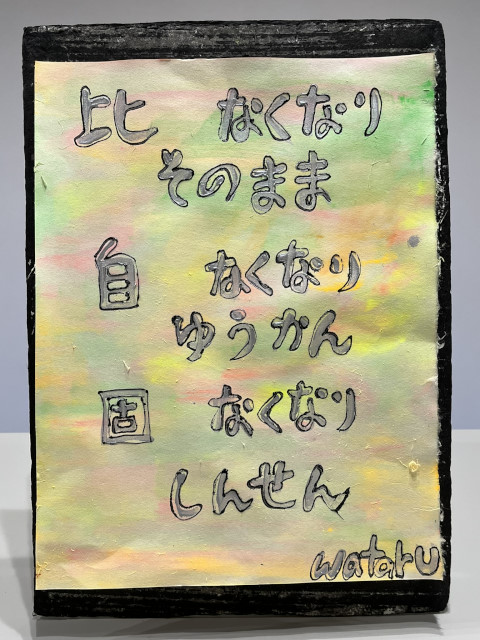 比 なくなり
そのまま
自 なくなり
ゆうかん
固 なくなり
しんせん
wataru